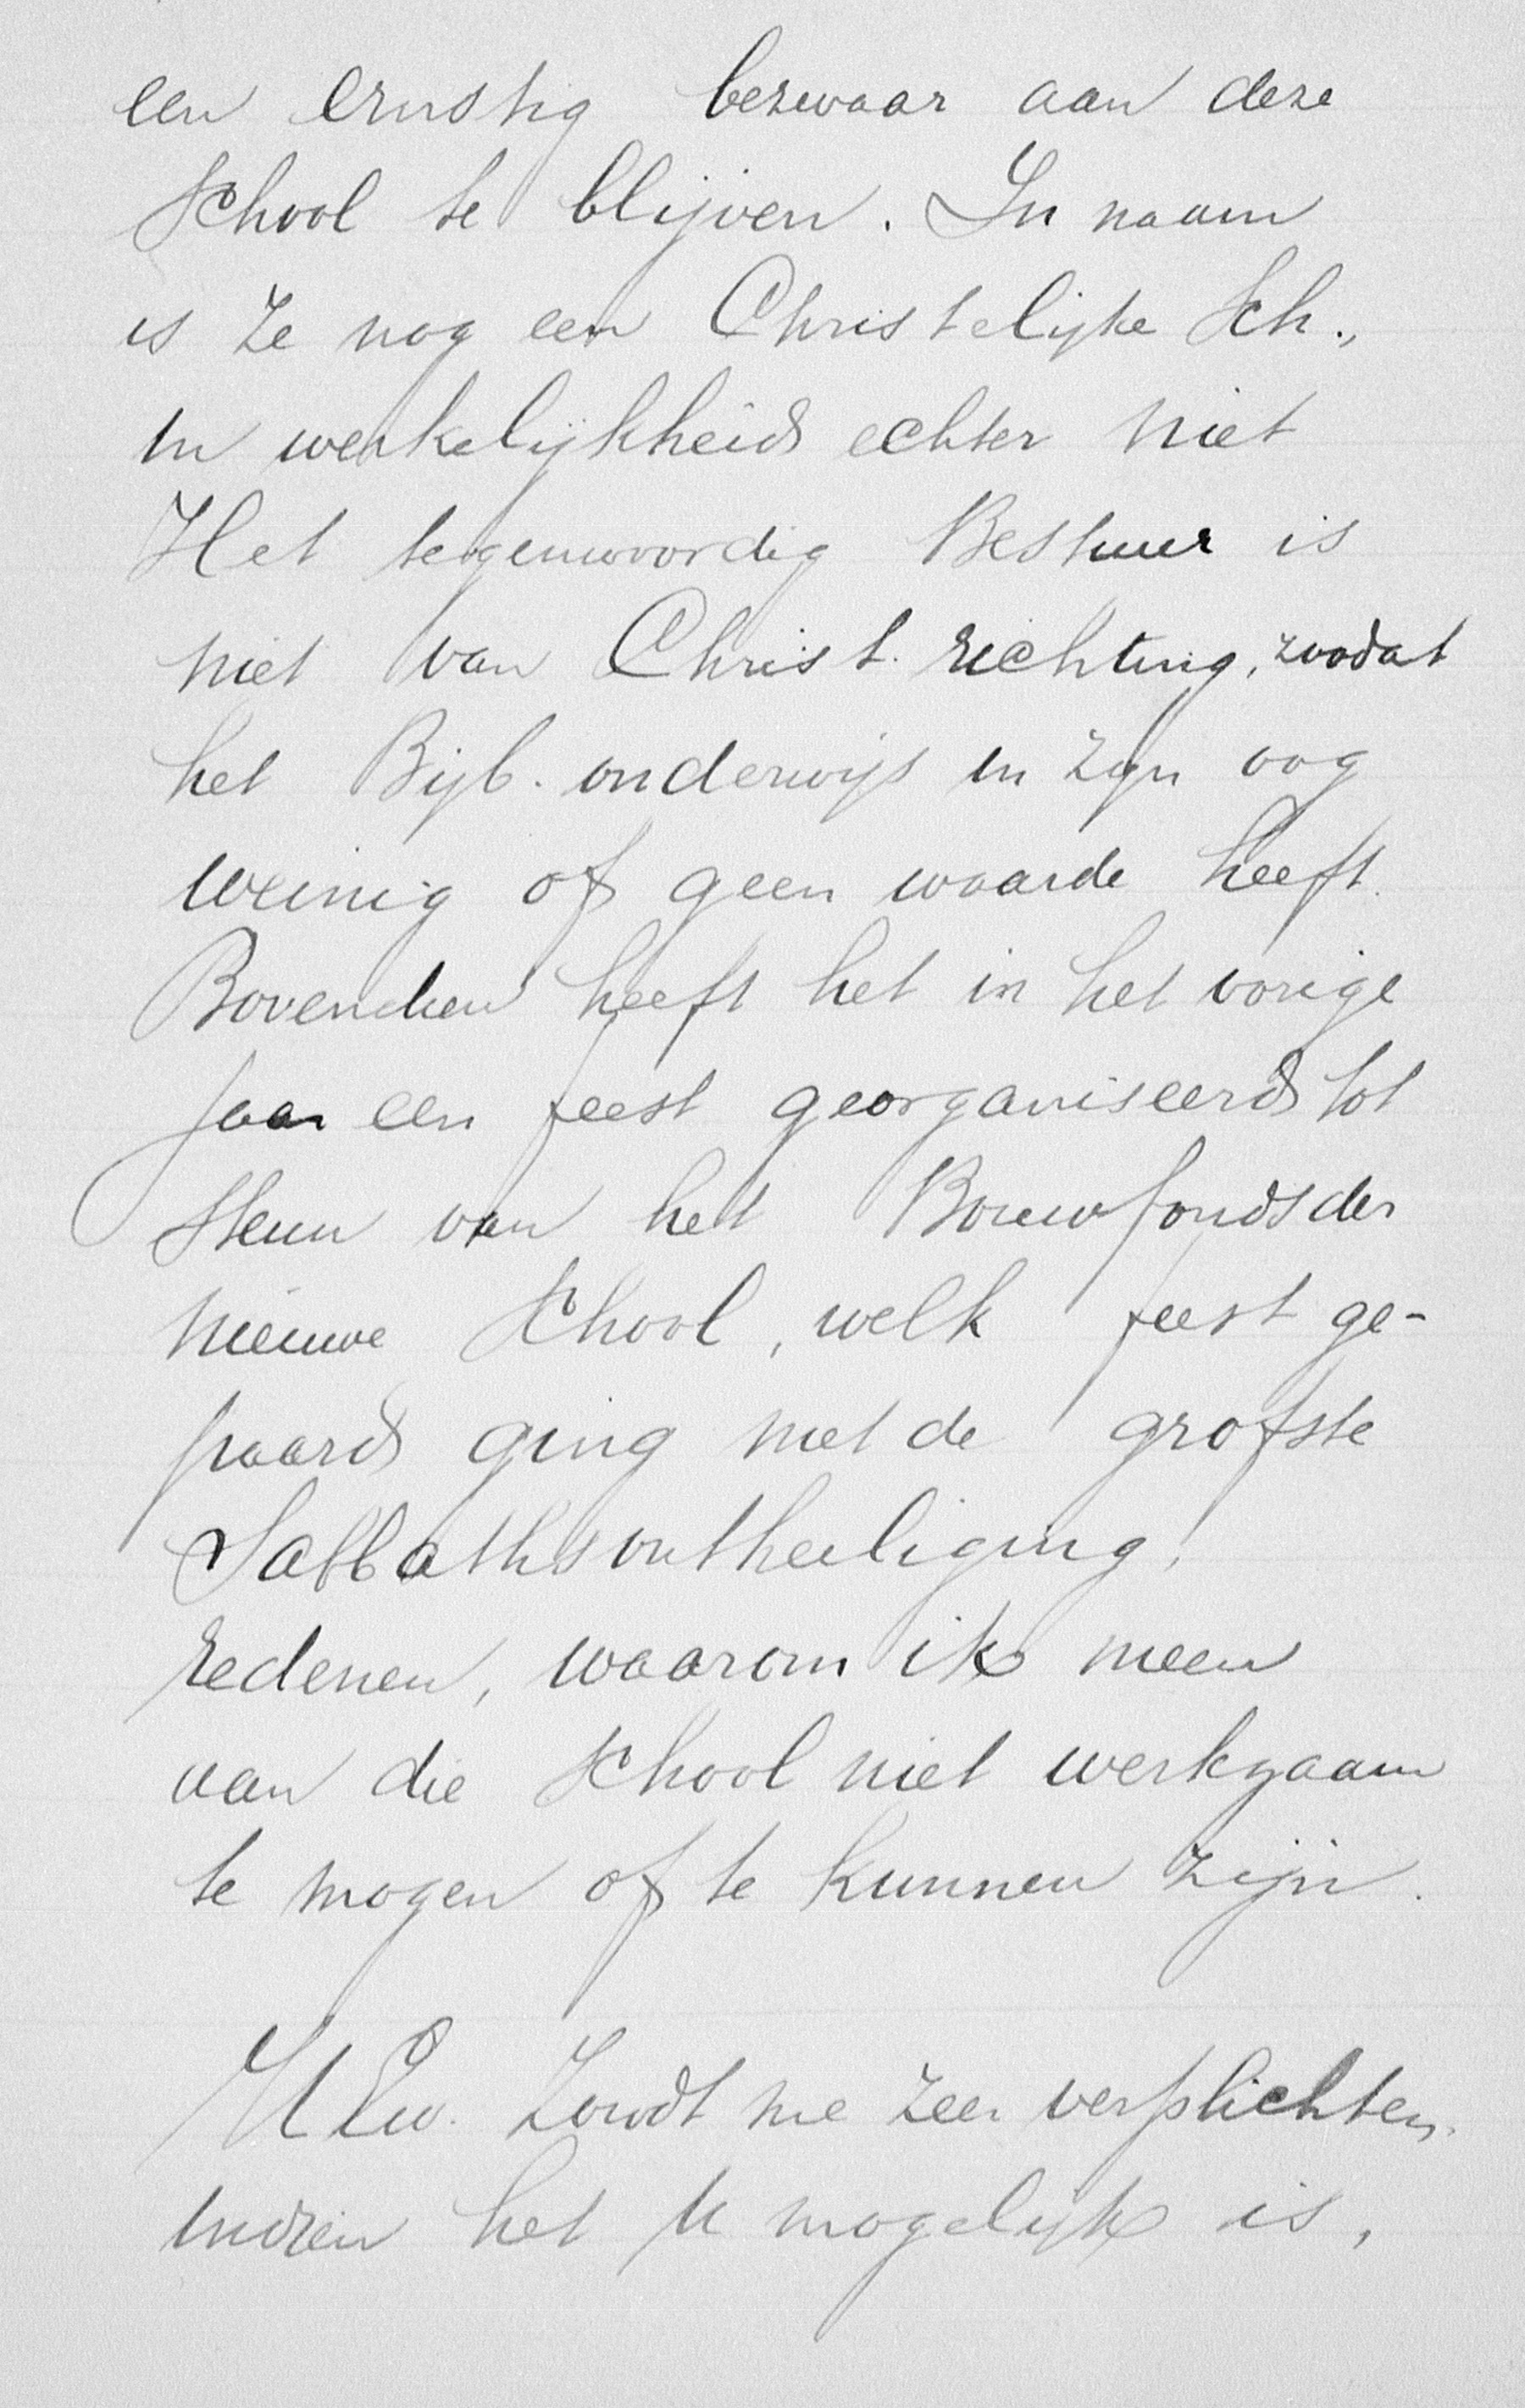 een ernstig bezwaar aan deze
school te blijven. In naam
is ze nog een Christelijke Sch.,
in werkelijkheid echter niet
Het tegenwoordig Bestuur is
niet van Christ. richting, zoodat
het Bijb. onderwijs in zijn oog
weinig of geen waarde heeft.
Bovendien heeft het in het vorige
jaar een feest georganiseerd tot
steun van het Bouwfonds der
nieuwe school, welk feest ge-
paard ging met de grofste
Sabbathsontheiliging!
redenen, waarom ik meen
aan die school niet werkzaam
te mogen of te kunnen zijn.
UEw. zoudt me zeer verplichten,
indien het U mogelijk is,